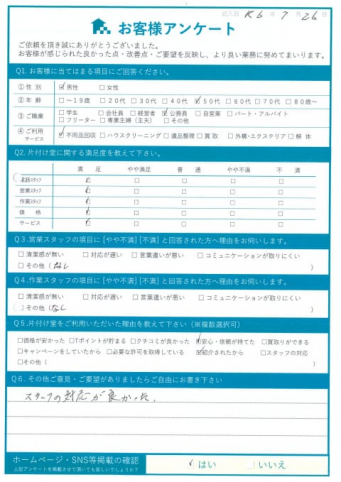 記入日 R6 年 7 月 26 日
お客様アンケート
ご依頼を頂き誠にありがとうございました。
お客様が感じられた良かった点・改善点・ご要望を反映し、より良い業務に努めてまいります。
Q1. お客様に当てはまる項目にご回答ください。
① 性 別 ☑男性 □女性
② 年 齢 □～19歳 □20代 □30代 □40代 ☑50代 □60代 □70代 □80歳～
③ ご職業 □学生 □会社員 □経営者 ☑公務員 □自営業 □パート・アルバイト
□フリーター □専業主婦（主夫） □その他
④ ご利用サービス ☑不用品回収 □ハウスクリーニング □遺品整理 □買取 □外構・エクステリア □解体
Q2. 片付け堂に関する満足度を教えて下さい。
満 足 やや満足 普 通 やや不満 不 満
電話スタッフ ☑ □ □ □ □
営業スタッフ ☑ □ □ □ □
作業スタッフ ☑ □ □ □ □
価 格 ☑ □ □ □ □
サービス ☑ □ □ □ □
Q3.営業スタッフの項目に［やや不満］［不満］と回答された方へ理由をお伺いします。
□清潔感が無い □対応が遅い □言葉遣いが悪い □コミュニケーションが取りにくい
□その他（なし ）
Q4.作業スタッフの項目に［やや不満］［不満］と回答された方へ理由をお伺いします。
□清潔感が無い □対応が遅い □言葉遣いが悪い □コミュニケーションが取りにくい
□その他（なし ）
Q5.片付け堂をご利用いただいた理由を教えて下さい（※複数選択可）
□価格が安かった □Tポイントが貯まる □クチコミが良かった ☑安心・信頼が持てた □買取りができる
□キャンペーンをしていたから □必要な許可を取得している ☑紹介されたから □スタッフの対応
□その他（ ）
Q6. その他ご意見・ご要望がありましたらご自由にお書き下さい
スタッフの対応が良かった。
ホームページ・SNS等掲載の確認
上記アンケートを掲載させて頂いても宜しいでしょうか？
☑はい □いいえ